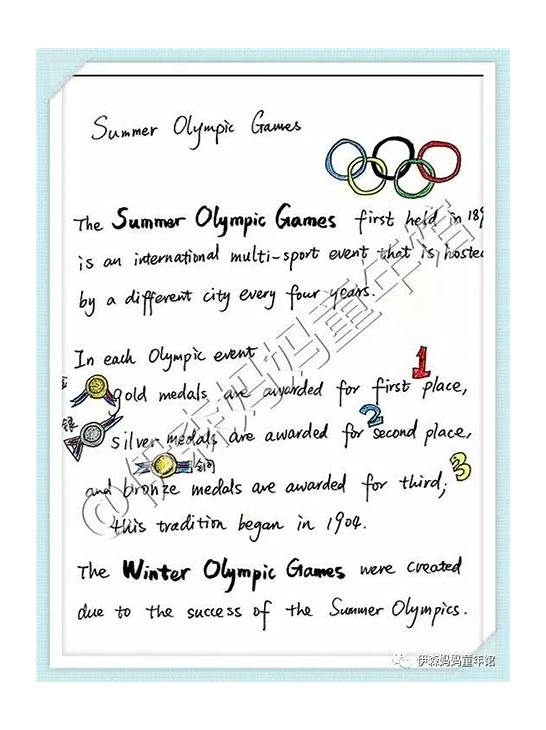 Summer Olympic Games
The Summer Olympic Games first held in 189
is an international multi-sport event that is hosted
by a different city every four years.
In each Olympic event
1
金 gold medals are awarded for first place,
2
银 silver medals are awarded for second place,
铜
3
and bronze medals are awarded for third;
this tradition began in 1904.
The Winter Olympic Games were created
due to the success of the Summer Olympics.
@伊森妈妈童年馆
伊森妈妈童年馆